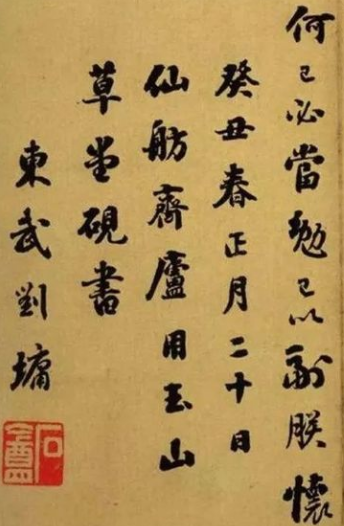 何已必當勉已以副朕懷
癸丑春正月二十日
仙舫齋廬用玉山
草堂硯書
東武劉墉
石盦